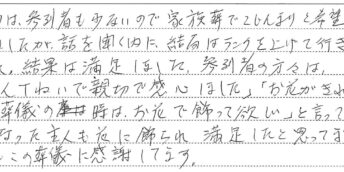 は、参列者も少ないので家族葬でこじんまりと希望
したが、話を聞く内に、結局はランクを上げて行き
結果は満足しました。参列者の方々は、
ていねいで親切で感心しました」「お花がきれ
葬儀の時は、お花で飾って欲しい」と言って
なった主人も花に飾られ満足したと思ってま
この葬儀に感謝してます。